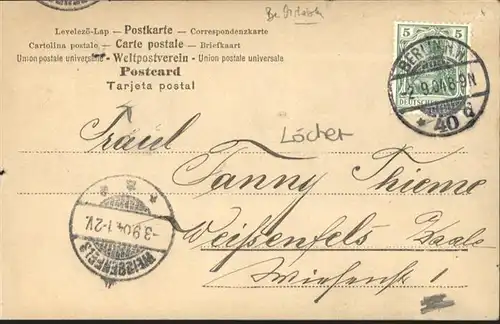 Levelező-Lap — Postkarte — Correspondenzkarte
Cartolina postale — Carte postale — Briefkaart
Union postale universelle - Weltpostverein - Union postale universale
Postcard
Tarjeta postal
5 5
BERLIN N.W.
-2.9.04.8-9N
* 40 d
DEUTSCHES
Löcher
Fräul
Fanny Thieme
Weißenfels Saale
Wiesenstr 1
WEISSENFELS
-3.9.04.1-2V.
* a *